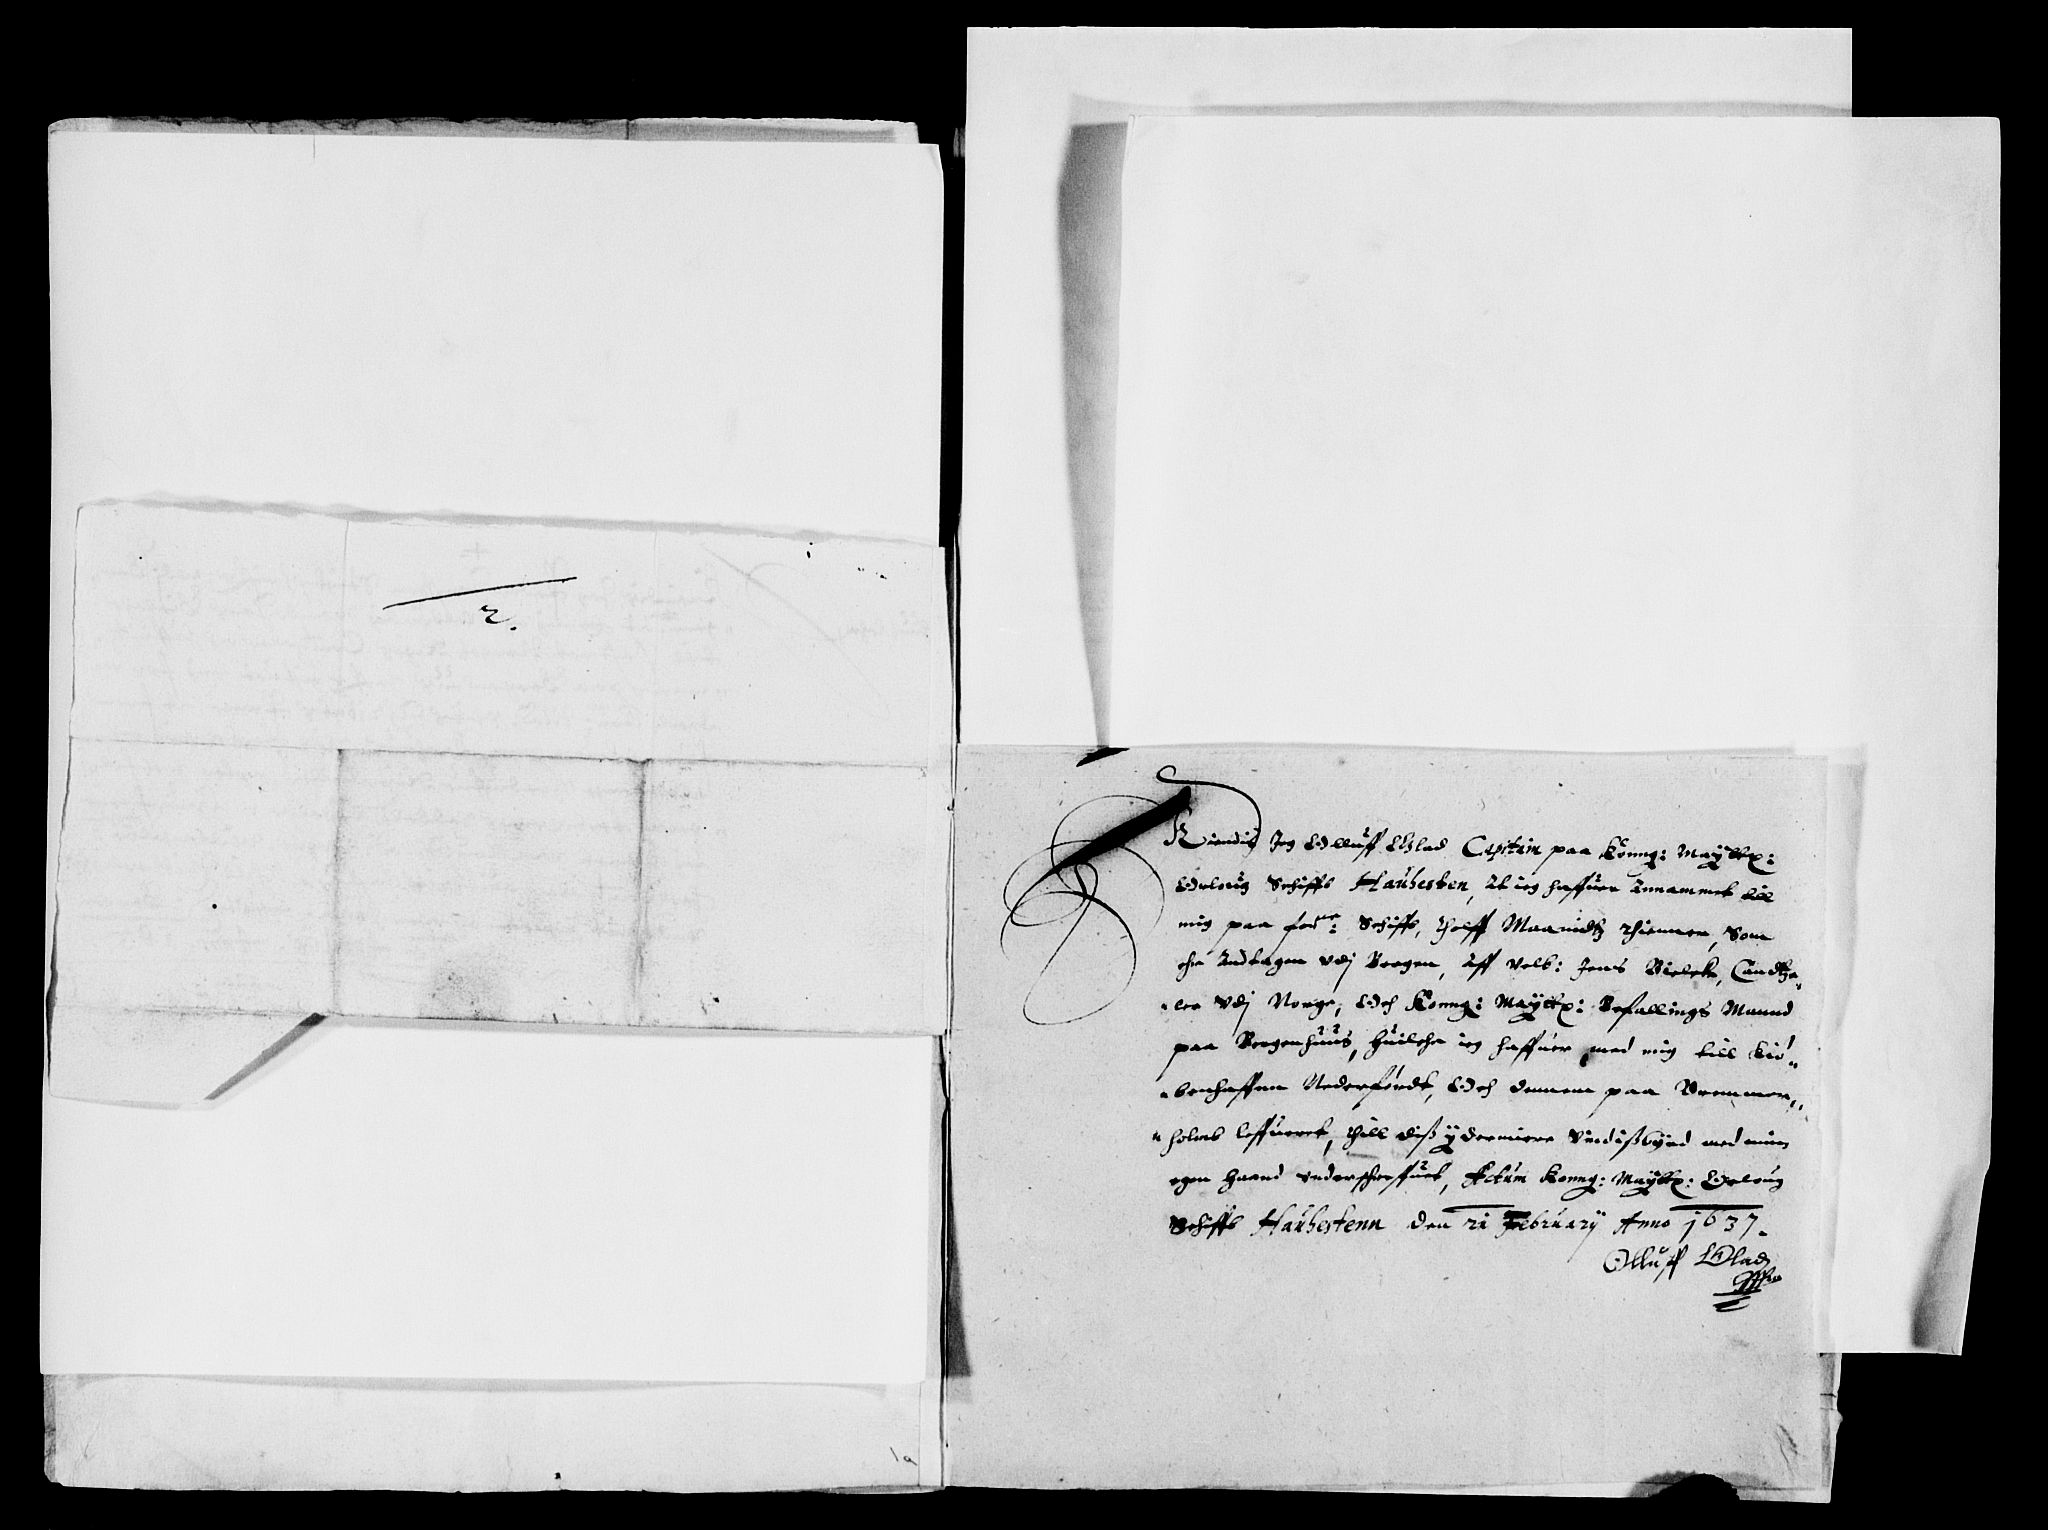 2.
Kiendis Jeg Olluff Glad Capitain paa Konng: Maÿttz:
Orloug Schiffs Hauhesten, At ieg haffuer Annammet till
mig paa forne: Schiff, Tholff Maanidtz Thienner, Som
ehr Andtagen vdj Bergen, Aff Velb: Jens Bielcke, Candtze„
„ler Vdj Norge, Och Konng: Maÿttz: Befallings Mannd
paa Bergenhuus, Huilche ieg haffuer med mig till Kiø„
„benhaffnn Nederførdt, Och dennem paa Bremmer„
„holms leffueret, Thill diß ÿdermiere Vindißbÿrd med minn
egen Haand vnderschreffuet, Actum Konng: Maÿttz: Orloug
Schiffs Hauhestenn den 21 February Anno 1637.
Olluff Glad
1a